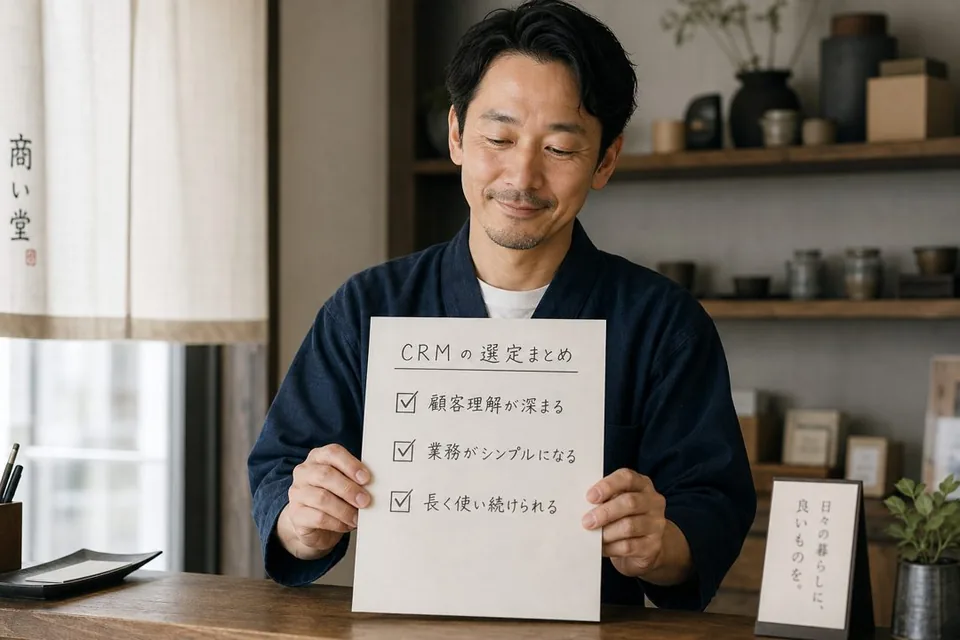 商い堂
CRMの選定まとめ
顧客理解が深まる
業務がシンプルになる
長く使い続けられる
日々の暮らしに、
良いものを。